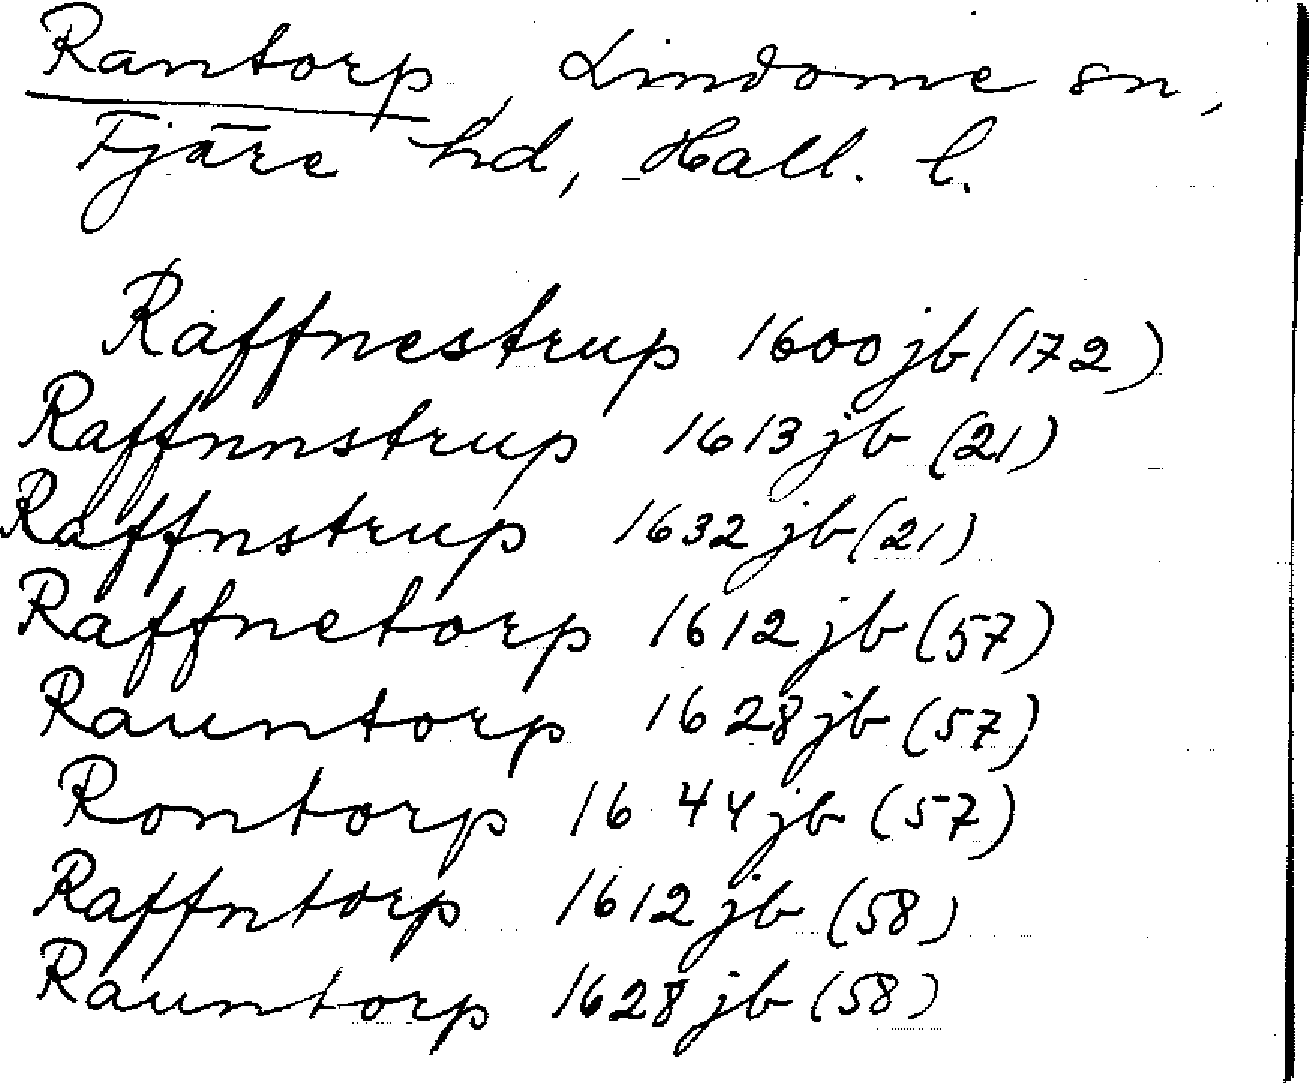 Rantorp, Lindome sn,
Fjäre hd, Hall. l.
Raffnestrup 1600 jb (172)
Raffnnstrup 1613 jb (21)
Raffnstrup 1632 jb (21)
Raffnetorp 1612 jb (57)
Rauntorp 1628 jb (57)
Rontorp 1644 jb (57)
Raffntorp 1612 jb (58)
Rauntorp 1628 jb (58)